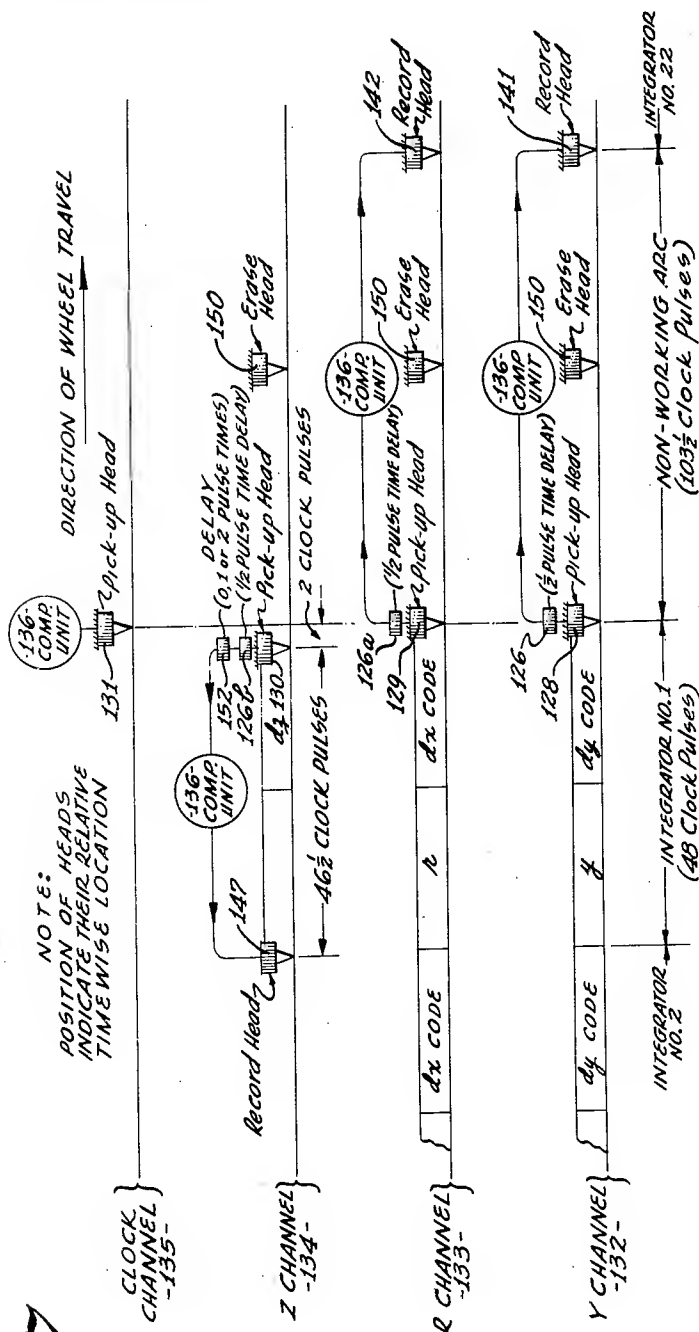 NOTE:
POSITION OF HEADS
INDICATE THEIR RELATIVE
TIMEWISE LOCATION
DIRECTION OF WHEEL TRAVEL
CLOCK
CHANNEL
-135-
-136-
COMP.
UNIT
131
Pick-up Head
Z CHANNEL
-134-
Record Head
147
-136-
COMP.
UNIT
DELAY
152
(0, 1 or 2 PULSE TIMES)
126b
(1/2 PULSE TIME DELAY)
Pick-up Head
dz 130
150
Erase
Head
46½ CLOCK PULSES
2 CLOCK PULSES
R CHANNEL
-133-
dx CODE
r
dx CODE
126a
(1/2 PULSE TIME DELAY)
129
Pick-up Head
-136-
COMP.
UNIT
150
Erase
Head
142
Record
Head
Y CHANNEL
-132-
dy CODE
y
dy CODE
126
(½ PULSE TIME DELAY)
128
Pick-up Head
-136-
COMP.
UNIT
150
Erase
Head
141
Record
Head
INTEGRATOR
NO. 2
INTEGRATOR NO. 1
(48 Clock Pulses)
NON-WORKING ARC
(103½ Clock Pulses)
INTEGRATOR
NO. 22